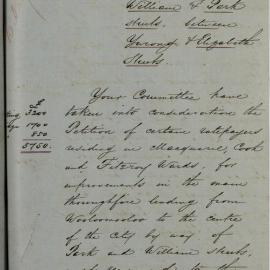 William & Park
Streets. between
Yurong & Elizabeth
Streets.
Your Committee have
taken into consideration the
Petition of certain ratepayers
residing in Macquarie, Cook
and Fitzroy Wards, for
improvements in the main
thoroughfare leading from
Wooloomooloo to the centre
of the City by way of
Park and William Streets,
£
3200
1700
850
5750.